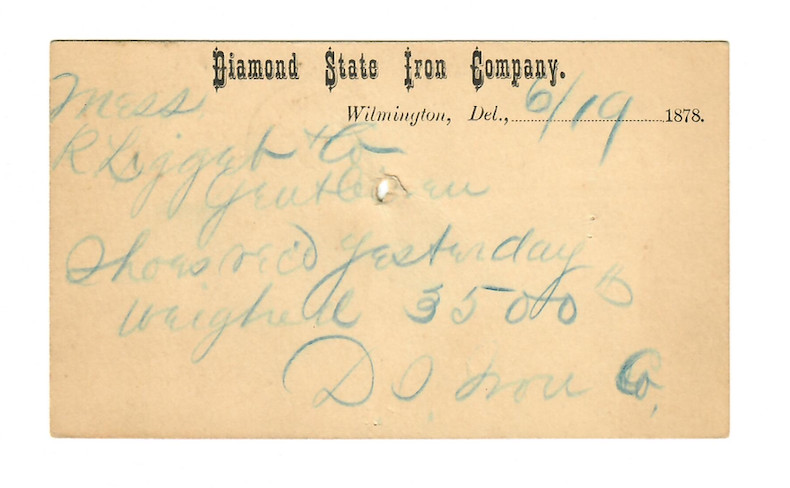 Diamond State Iron Company.
Wilmington, Del., 6/19 1878.
Mess
R Ligget & Co
Gentlemen
Shoes rec'd yesterday
weighed 3500 lb
D S. Iron Co.